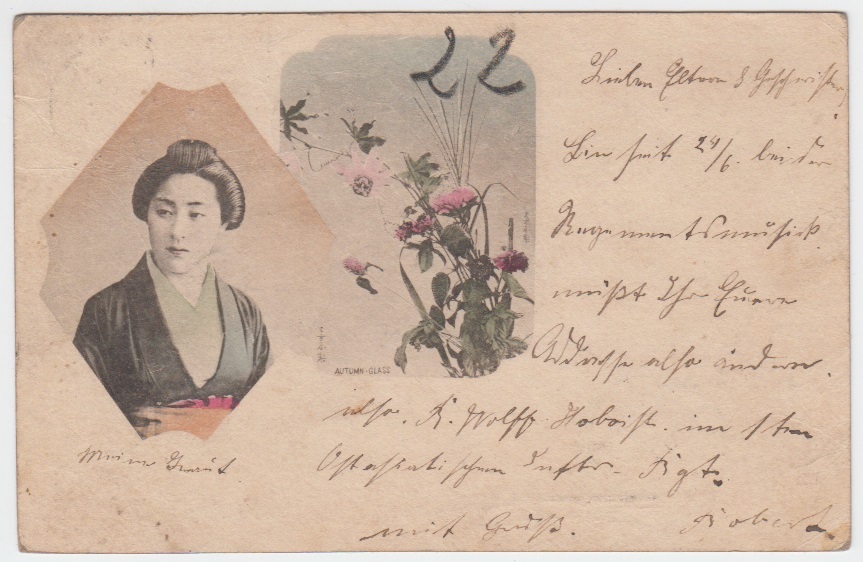 22
Lieben Eltern & Geschwister,
Bin seit 24/6. bei der
Regementsmusick.
müßt Ihr Euere
Addresse also ändern.
also. R. Wolff. Hoboist. im 1ten
Ostasiatischen Inftr- Rgt.
mit Gruß. Robert.
Meine Braut
AUTUMN-GLASS